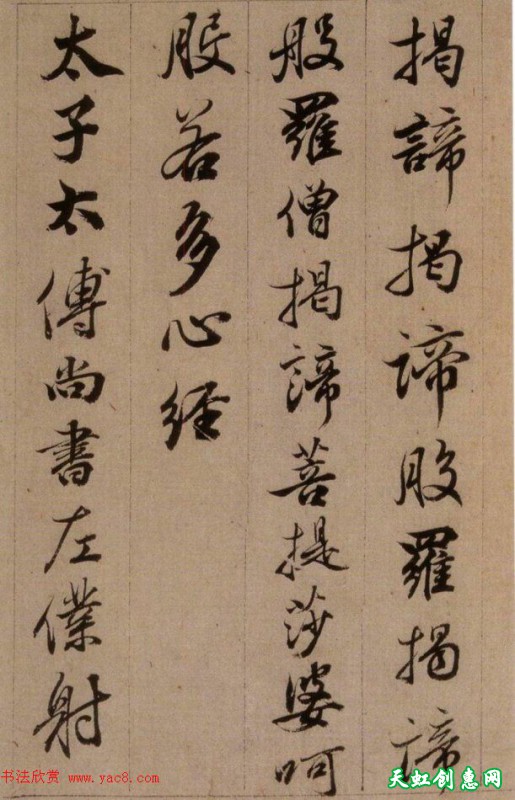 揭諦揭諦般羅揭諦
般羅僧揭諦菩提莎婆呵
般若多心經
太子太傅尚書左僕射
书法欣赏 www.yac8.com
天虹创惠网